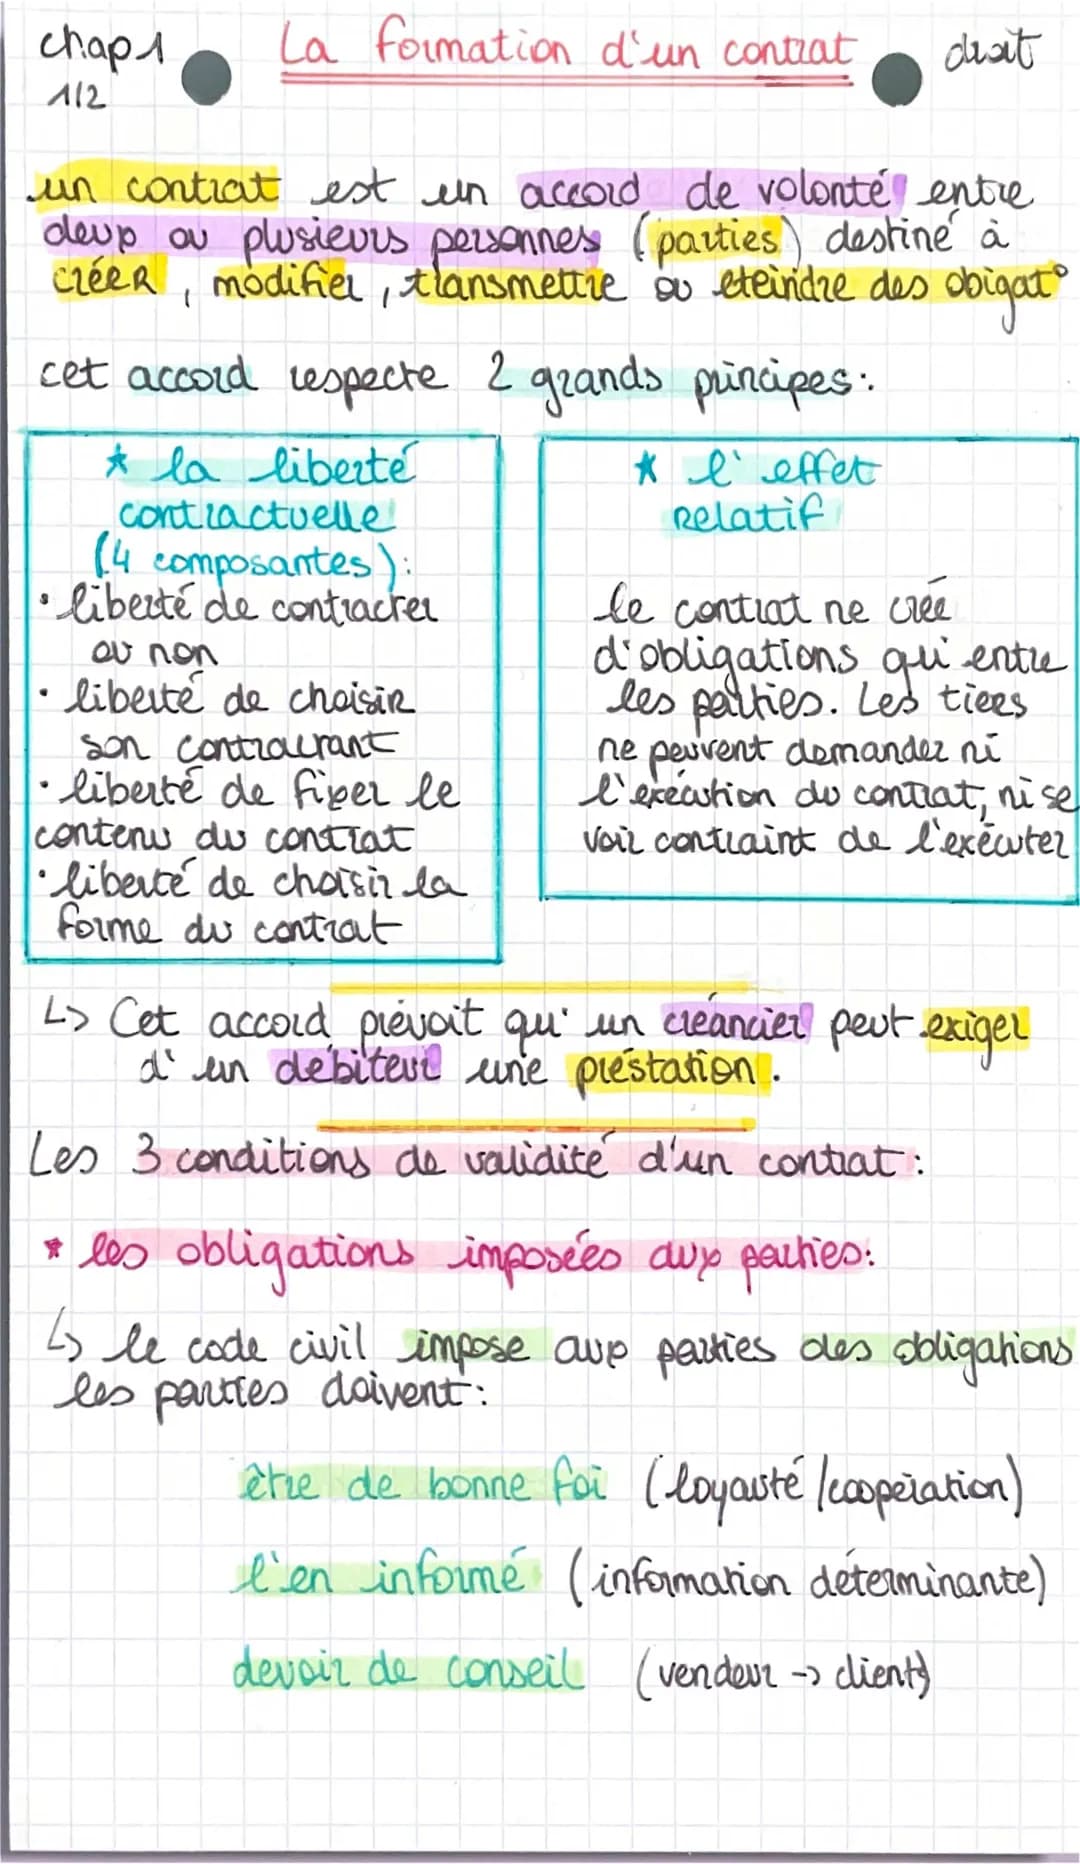 chap 1
La formation d'un contrat
droit
1/2
un contrat est un accord de volonté entre
deux ou plusieurs personnes (parties) destiné à
créer, modifier, transmettre ou éteindre des obigat°
cet accord respecte 2 grands principes :
* la liberté
contractuelle
(4 composantes) :
• liberté de contracter
ou non
• liberté de choisir
son contractant
• liberté de fixer le
contenu du contrat
• liberté de choisir la
forme du contrat
* l'effet
relatif
le contrat ne crée
d'obligations qu'entre
les parties. Les tiers
ne peuvent demander ni
l'exécution du contrat, ni se
voir contraint de l'exécuter
↳ Cet accord prévoit qu'un créancier peut exiger
d'un débiteur une préstation.
Les 3 conditions de validité d'un contrat :
* les obligations imposées aux parties :
↳ le code civil impose aux parties des obligations
les parties doivent :
être de bonne foi (loyauté / coopération)
l'en informé (information déterminante)
devoir de conseil (vendeur -> client)